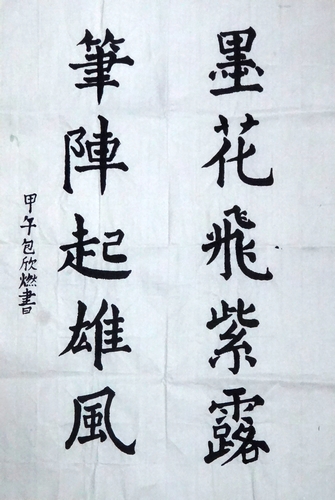 墨花飛紫露
筆陣起雄風
甲午包欣燃書